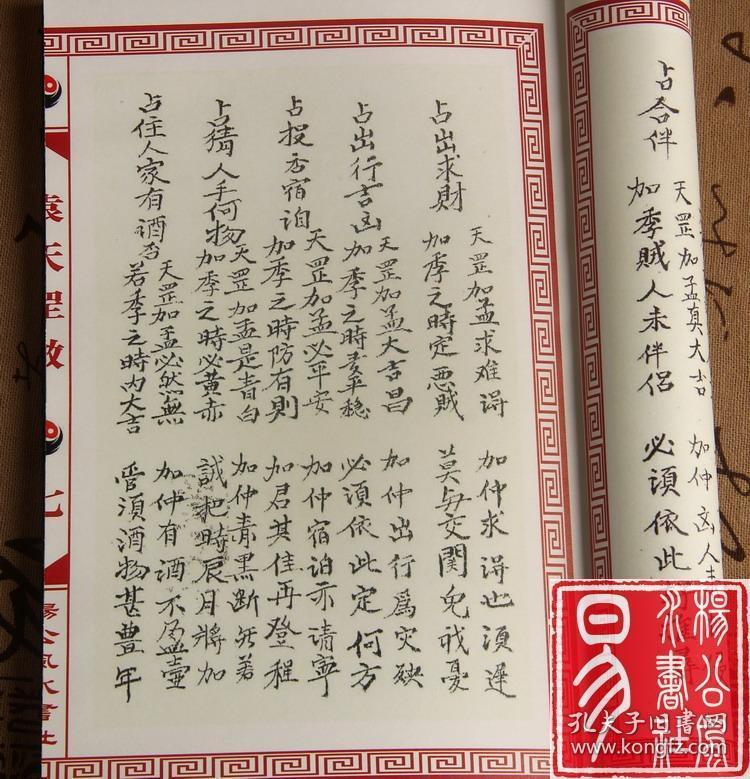 占合伴
天罡加孟真大吉 加仲凶人
加季賊人未伴侶 必須依此
占出求財
天罡加孟求难得 加仲求得也須遲
加季之時定惡賊 莫与交関免我憂
占出行吉凶
天罡加孟大吉昌 加仲出行為灾殃
加季之時麦平稳 必須依此定何方
占投宿泊
天罡加孟必平安 加仲宿泊亦清寧
加季之時防有則 加君其住再登程
占猜人手何物
天罡加孟是青白 加仲青黑断
加季之時必黄赤 誠把時辰月將加
占住人家有酒否
天罡加孟必然無 加仲有酒不盈壺
若季之時内大吉 管須酒物甚豊年
袁天罡
七
楊公風水書社
楊公風水書社
易
孔夫子旧書网
www.kongfz.com